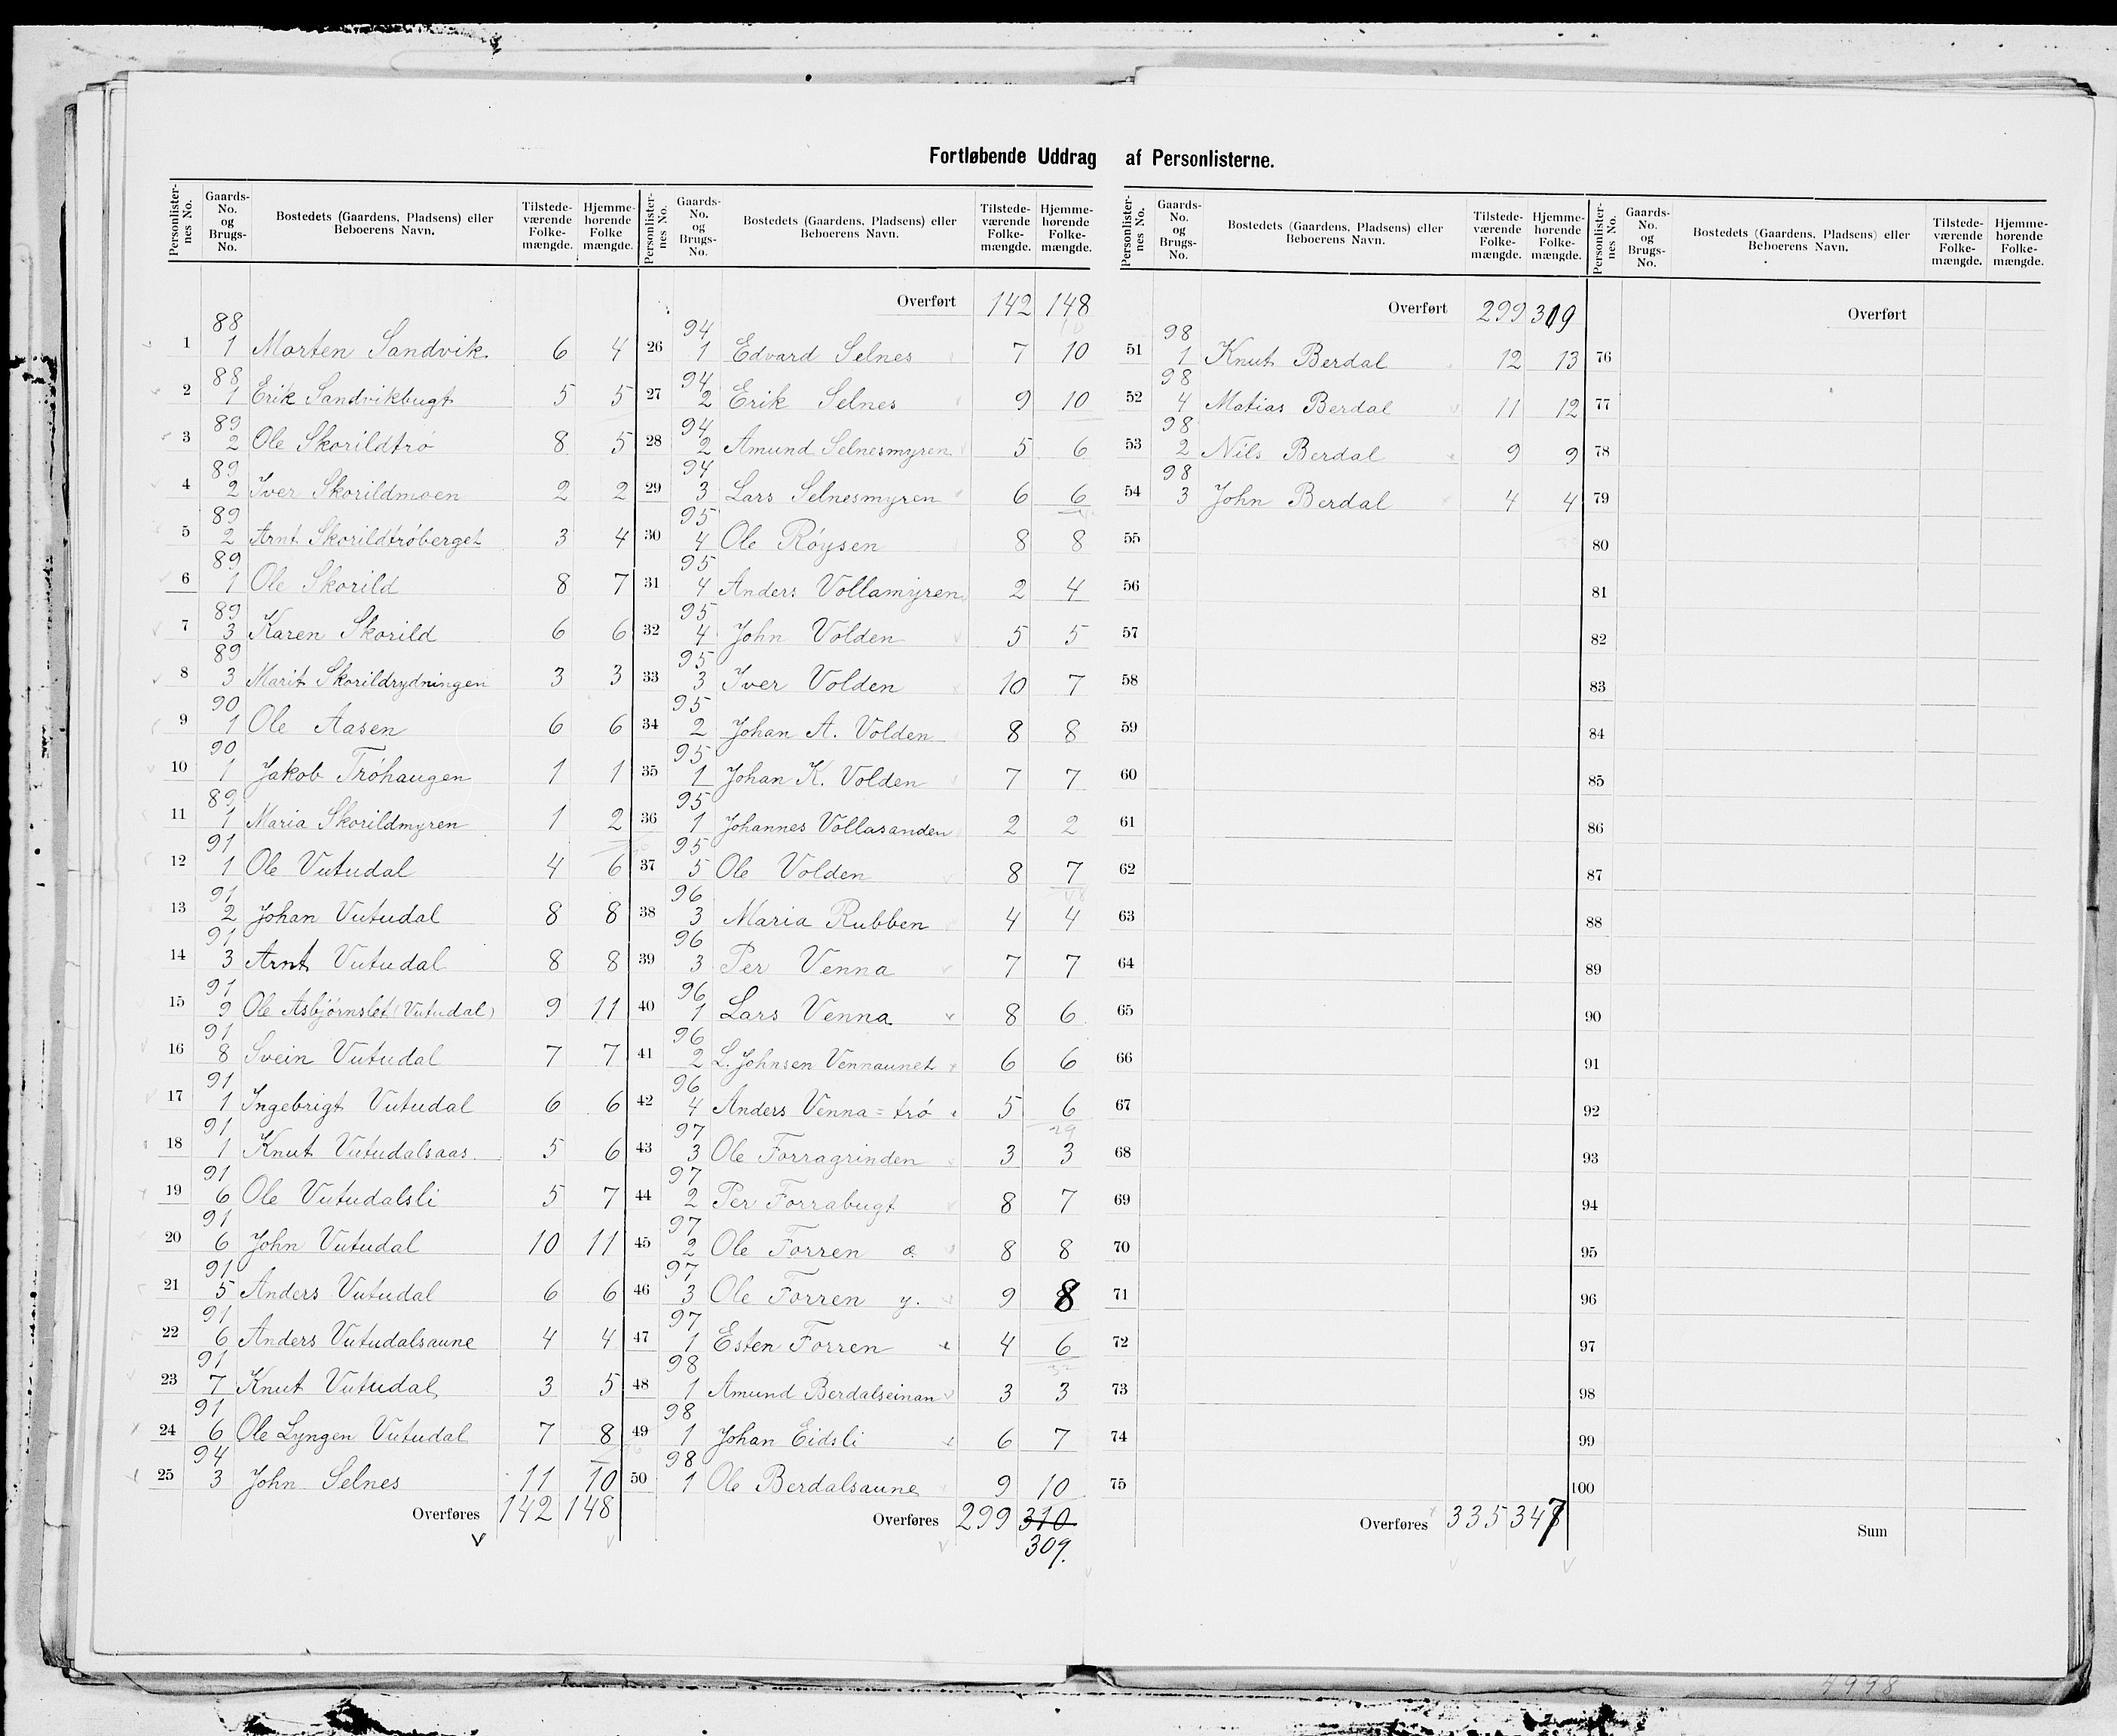 Fortløbende Uddrag af Personlisterne.
Personlisternes No. Gaards-No. og Brugs-No. Bostedets (Gaardens, Pladsens) eller Beboerens Navn. Tilstedeværende Folkemængde. Hjemmehørende Folkemængde.
1 88 1 Morten Sandvik 6 4
2 88 1 Erik Sandvikbugt 5 5
3 89 2 Ole Skorildtrø 8 5
4 89 2 Iver Skorildmoen 2 2
5 89 2 Arnt Skorildtrøberget 3 4
6 89 1 Ole Skorild 8 7
7 89 3 Karen Skorild 6 6
8 89 3 Marit Skorildrydningen 3 3
9 90 1 Ole Aasen 6 6
10 90 1 Jakob Trøhaugen 1 1
11 89 1 Maria Skorildmyren 1 2
12 91 1 Ole Vutudal 4 6
13 91 2 Johan Vutudal 8 8
14 91 3 Arnt Vutudal 8 8
15 91 9 Ole Asbjørnslet (Vutudal) 9 11
16 91 8 Svein Vutudal 7 7
17 91 1 Ingebrigt Vutudal 6 6
18 91 1 Knut Vutudalsaas 5 6
19 91 6 Ole Vutudalsli 5 7
20 91 6 John Vutudal 10 11
21 91 5 Anders Vutudal 6 6
22 91 6 Anders Vutudalsaune 4 4
23 91 7 Knut Vutudal 3 5
24 91 6 Ole Lyngen Vutudal 7 8
25 94 3 John Selnes 11 10
Overføres 142 148
Personlisternes No. Gaards-No. og Brugs-No. Bostedets (Gaardens, Pladsens) eller Beboerens Navn. Tilstedeværende Folkemængde. Hjemmehørende Folkemængde.
Overført 142 148
26 94 1 Edvard Selnes 7 10
27 94 2 Erik Selnes 9 10
28 94 2 Amund Selnesmyren 5 6
29 94 3 Lars Selnesmyren 6 6
30 95 4 Ole Røysen 8 8
31 95 4 Anders Vollamyren 2 4
32 95 4 John Volden 5 5
33 95 3 Iver Volden 10 7
34 95 2 Johan A. Volden 8 8
35 95 1 Johan K. Volden 7 7
36 95 1 Johannes Vollasanden 2 2
37 95 5 Ole Volden 8 7
38 96 3 Maria Rubben 4 4
39 96 3 Per Venna 7 7
40 96 1 Lars Venna 8 6
41 96 2 L. Johnsen Vennaunet 6 6
42 96 4 Anders Venna=trø 5 6
29
43 97 3 Ole Forragrinden 3 3
44 97 2 Per Forrabugt 8 7
45 97 2 Ole Forren æ. 8 8
46 97 3 Ole Forren y. 9 8
47 97 1 Esten Forren 4 6
32
48 98 1 Amund Berdalseinan 3 3
49 98 1 Johan Eidsli 6 7
50 98 1 Ole Berdalsaune 9 10
Overføres 299 310
309.
Personlisternes No. Gaards-No. og Brugs-No. Bostedets (Gaardens, Pladsens) eller Beboerens Navn. Tilstedeværende Folkemængde. Hjemmehørende Folkemængde.
Overført 299 309
51 98 1 Knut Berdal 12 13
52 98 4 Matias Berdal 11 12
53 98 2 Nils Berdal 9 9
54 98 3 John Berdal 4 4
55
56
57
58
59
60
61
62
63
64
65
66
67
68
69
70
71
72
73
74
75
Overføres 335 347
Personlisternes No. Gaards-No. og Brugs-No. Bostedets (Gaardens, Pladsens) eller Beboerens Navn. Tilstedeværende Folkemængde. Hjemmehørende Folkemængde.
Overført
76
77
78
79
80
81
82
83
84
85
86
87
88
89
90
91
92
93
94
95
96
97
98
99
100
Sum
4998